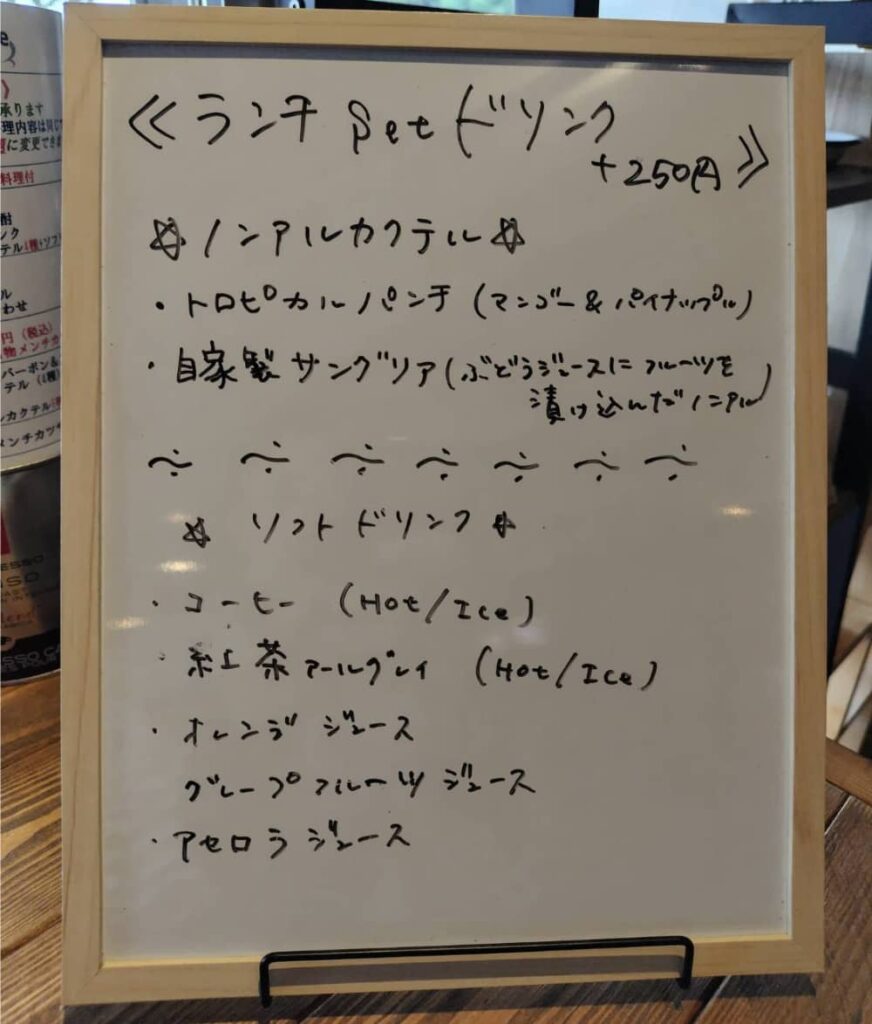 ≪ランチ Set ドリンク
+250円≫
☆ノンアルカクテル☆
・トロピカルパンチ (マンゴー&パイナップル)
・自家製サングリア(ぶどうジュースにフルーツを
漬け込んだノンアル)
☆ ソフトドリンク ☆
・コーヒー (Hot/Ice)
・紅茶アールグレイ (Hot/Ice)
・オレンジジュース
グレープフルーツジュース
・アセロラジュース
承ります
理内容は同じ
に変更できま
料理付
酎
ンク
テル4種+ソフ
ル
わせ
円(税込)
物メンチカ
バーボン&
テル(4種)
ンカクテル
メンチカツ
ESSO